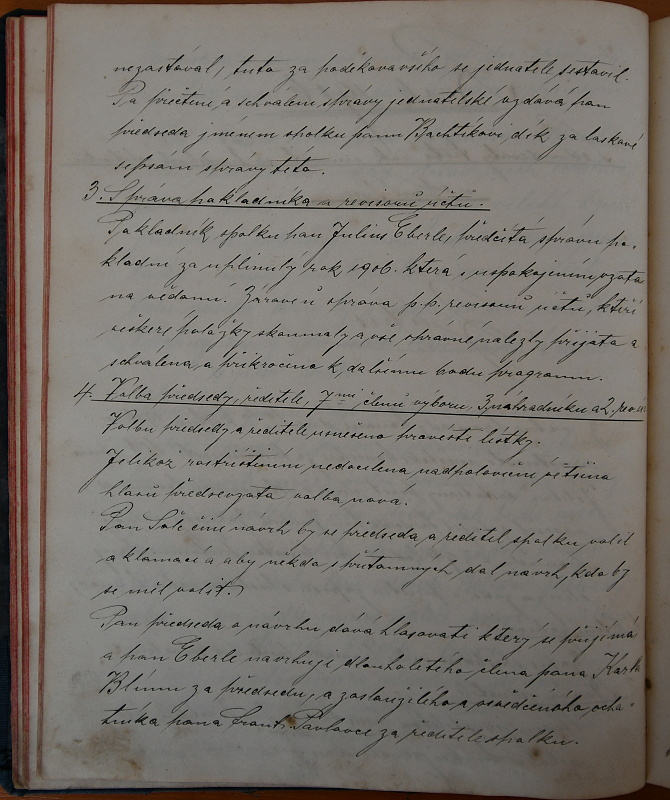 nezastával, tuto za poděkovavšího se jednatele sestavil.
Po přečtení a schválení správy jednatelské vzdává pan
předseda jménem spolku panu Bachtíkovi dík za laskavé
sepsání správy této.
3. Správa pokladníka a revisorů účtů.
Pokladník spolku pan Julius Eberle, předčítá správu po-
kladní za uplinulý rok 1906. která s uspokojením vzata
na vědomí. Zároveň správa p. p. revisorů účtů, kteří
veškeré položky skoumaly a vše správné nalezly přijata a
schválena, a přikročeno k dalšímu bodu programu.
4. Volba předsedy, ředitele, 7mi členů výboru, 3 náhradníků a 2. revis
Volbu předsedy a ředitele usnešeno provésti lístky.
Jelikož roztříštěním nedocílena nadpoloviční většina
hlasů předsevzata volba nová.
Pan činí návrh by se předseda a ředitel spolku volil
aklamací a aby někdo s přítomných dal návrh, kdo by
se měl volit.
Pan předseda o návrhu dává hlasovati který se přijímá
a pan Eberle navrhuji dlouholetého člena pana Karla
Blímu za předsedu, a zasloužilého a osvědčeného ocho-
tníka pana Frant. Pavlovce za ředitele spolku.